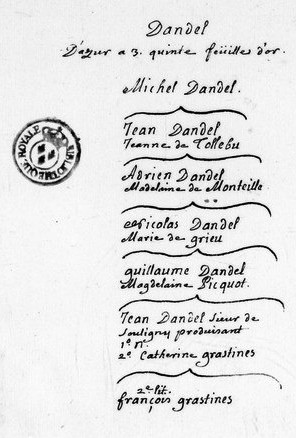 Dandel
D'azur a 3. quinte feüille d'or.
Michel Dandel.
Jean Dandel
Jeanne de Tollebu
Adrien Dandel
Madelaine de Monteille
Nicolas Dandel
Marie de grieu
guillaume Dandel
Magdelaine Picquot.
Jean Dandel sieur de
Souligny produisant
1º. N.
2º. Catherine grastines
2e. lit.
françois grastines
BIBLIOTHEQUE ROYALE